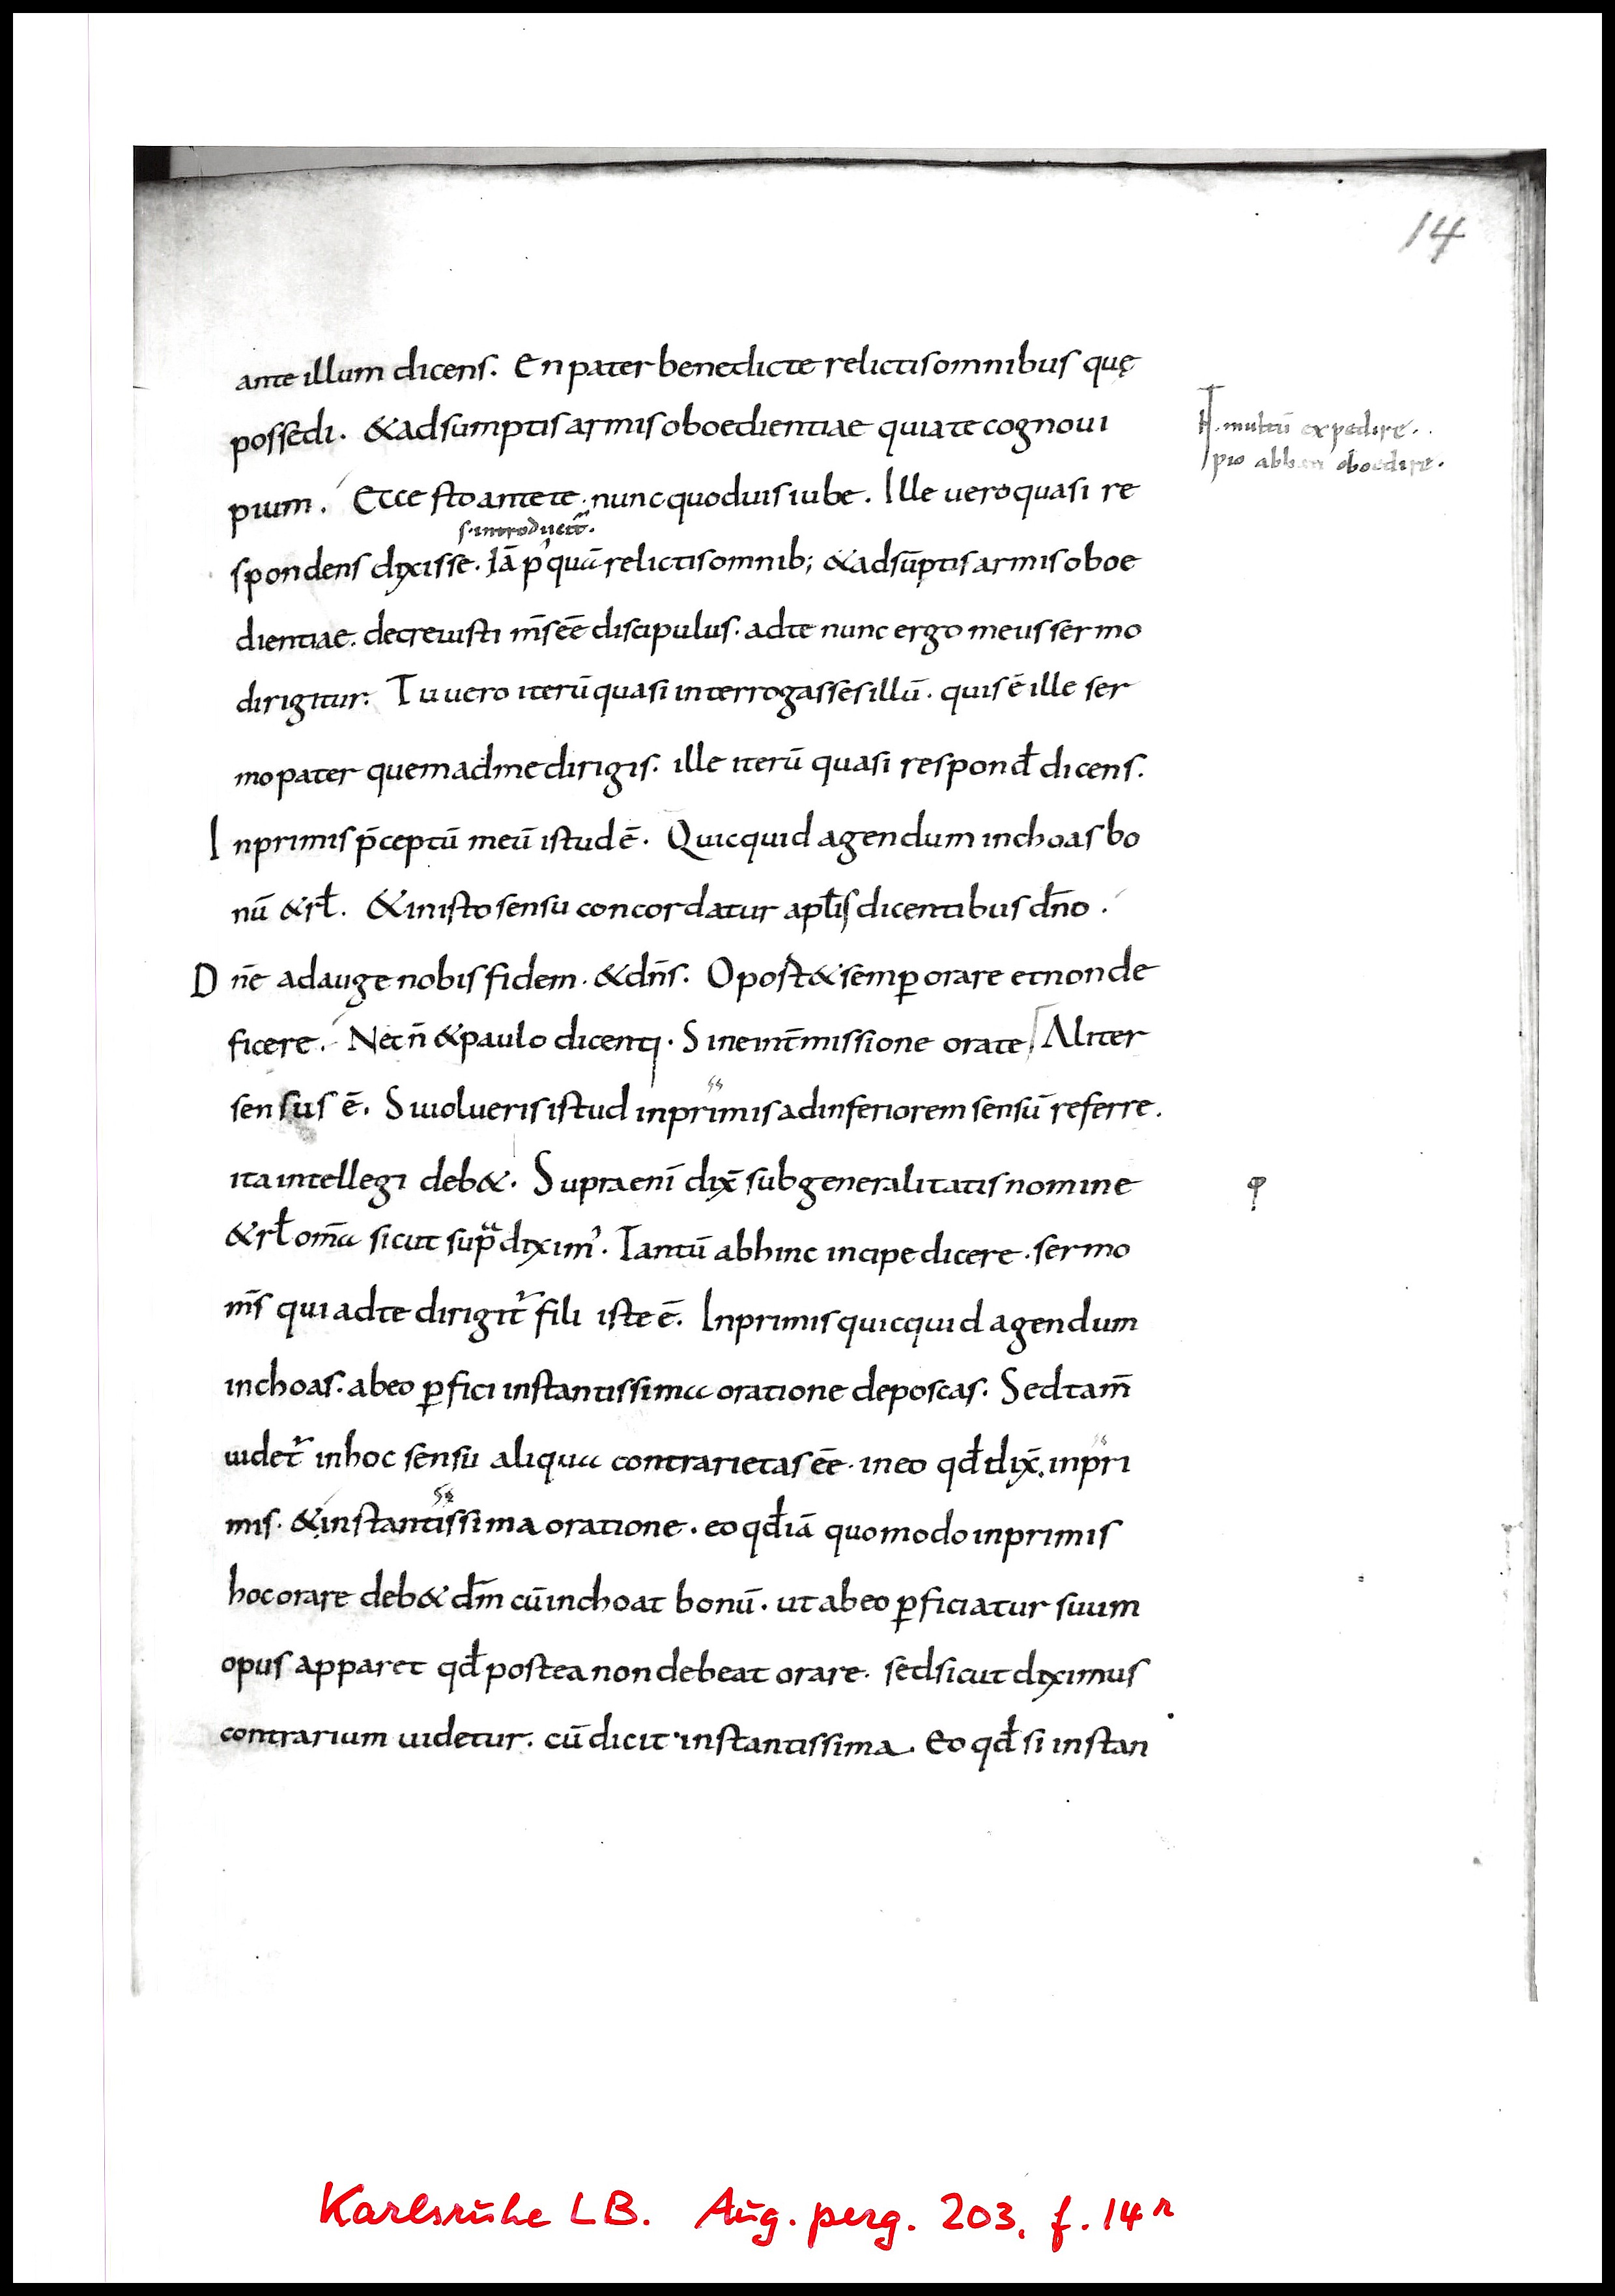 14
ante illum dicens. En pater benedicte relictis omnibus quę
possedi. & adsumptis armis oboedientiae quia te cognoui
pium. Ecce sto ante te. nunc quod uis iube. Ille uero quasi re
s. introduceret̄.
spondens dixisse. Iā p' quā relictis omnib; & adsūptis armis oboe
dientiae. decreuisti m̄s eē discipulus. ad te nunc ergo meus sermo
dirigitur. Tu uero iterū quasi interrogasses illū. quis ē ille ser
mo pater quem ad me dirigis. ille iterū quasi respond̄ dicens.
Inprimis p̄ceptū meū istud ē. Quicquid agendum inchoas bo
nū & rł. & in isto sensu concordatur apłis dicentibus dn̄o.
Dn̄e adauge nobis fidem. & dn̄s. Oport& semꝑ orare et non de
ficere. Nec n̄ & paulo dicenti. Sine int̄missione orate. Aliter
sensus ē. Si uolueris istud inprimis ad inferiorem sensū referre.
ita intellegi deb&. Supra enī dix̄ sub generalitatis nomine
& rł om̄a sicut sup̄a dixim'. Tantū abhinc incipe dicere. sermo
m̄s qui ad te dirigit̄ fili iste ē. Inprimis quicquid agendum
inchoas. ab eo ꝑfici instantissima oratione deposcas. Sed tam̄
uidet̄ in hoc sensu aliqua contrarietas eē. in eo qd̄ dix̄. inpri
mis. & instantissima oratione. eo qd̄ iā quomodo inprimis
hoc orare deb& dm̄ cū inchoat bonū. ut ab eo ꝑficiatur suum
opus apparet qd̄ postea non debeat orare. sed sicut diximus
contrarium uidetur. cū dicit instantissima. Eo qd̄ si instan
multū expedire.
pio abbati oboedire.
Karlsruhe LB. Aug. perg. 203, f. 14r